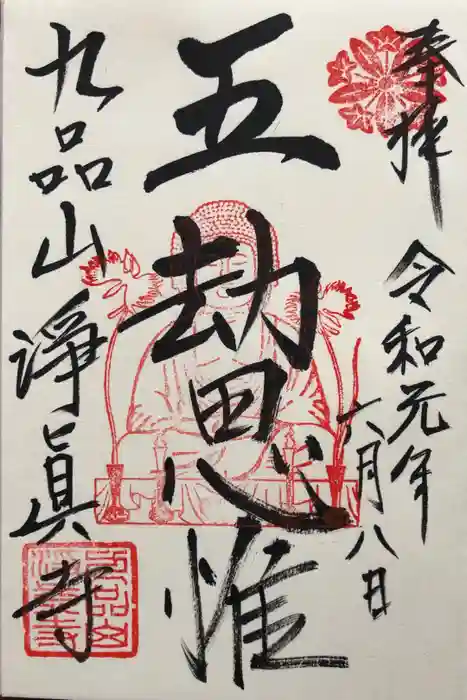 奉拝
令和元年
六月八日
五劫思惟
九品山 淨眞寺